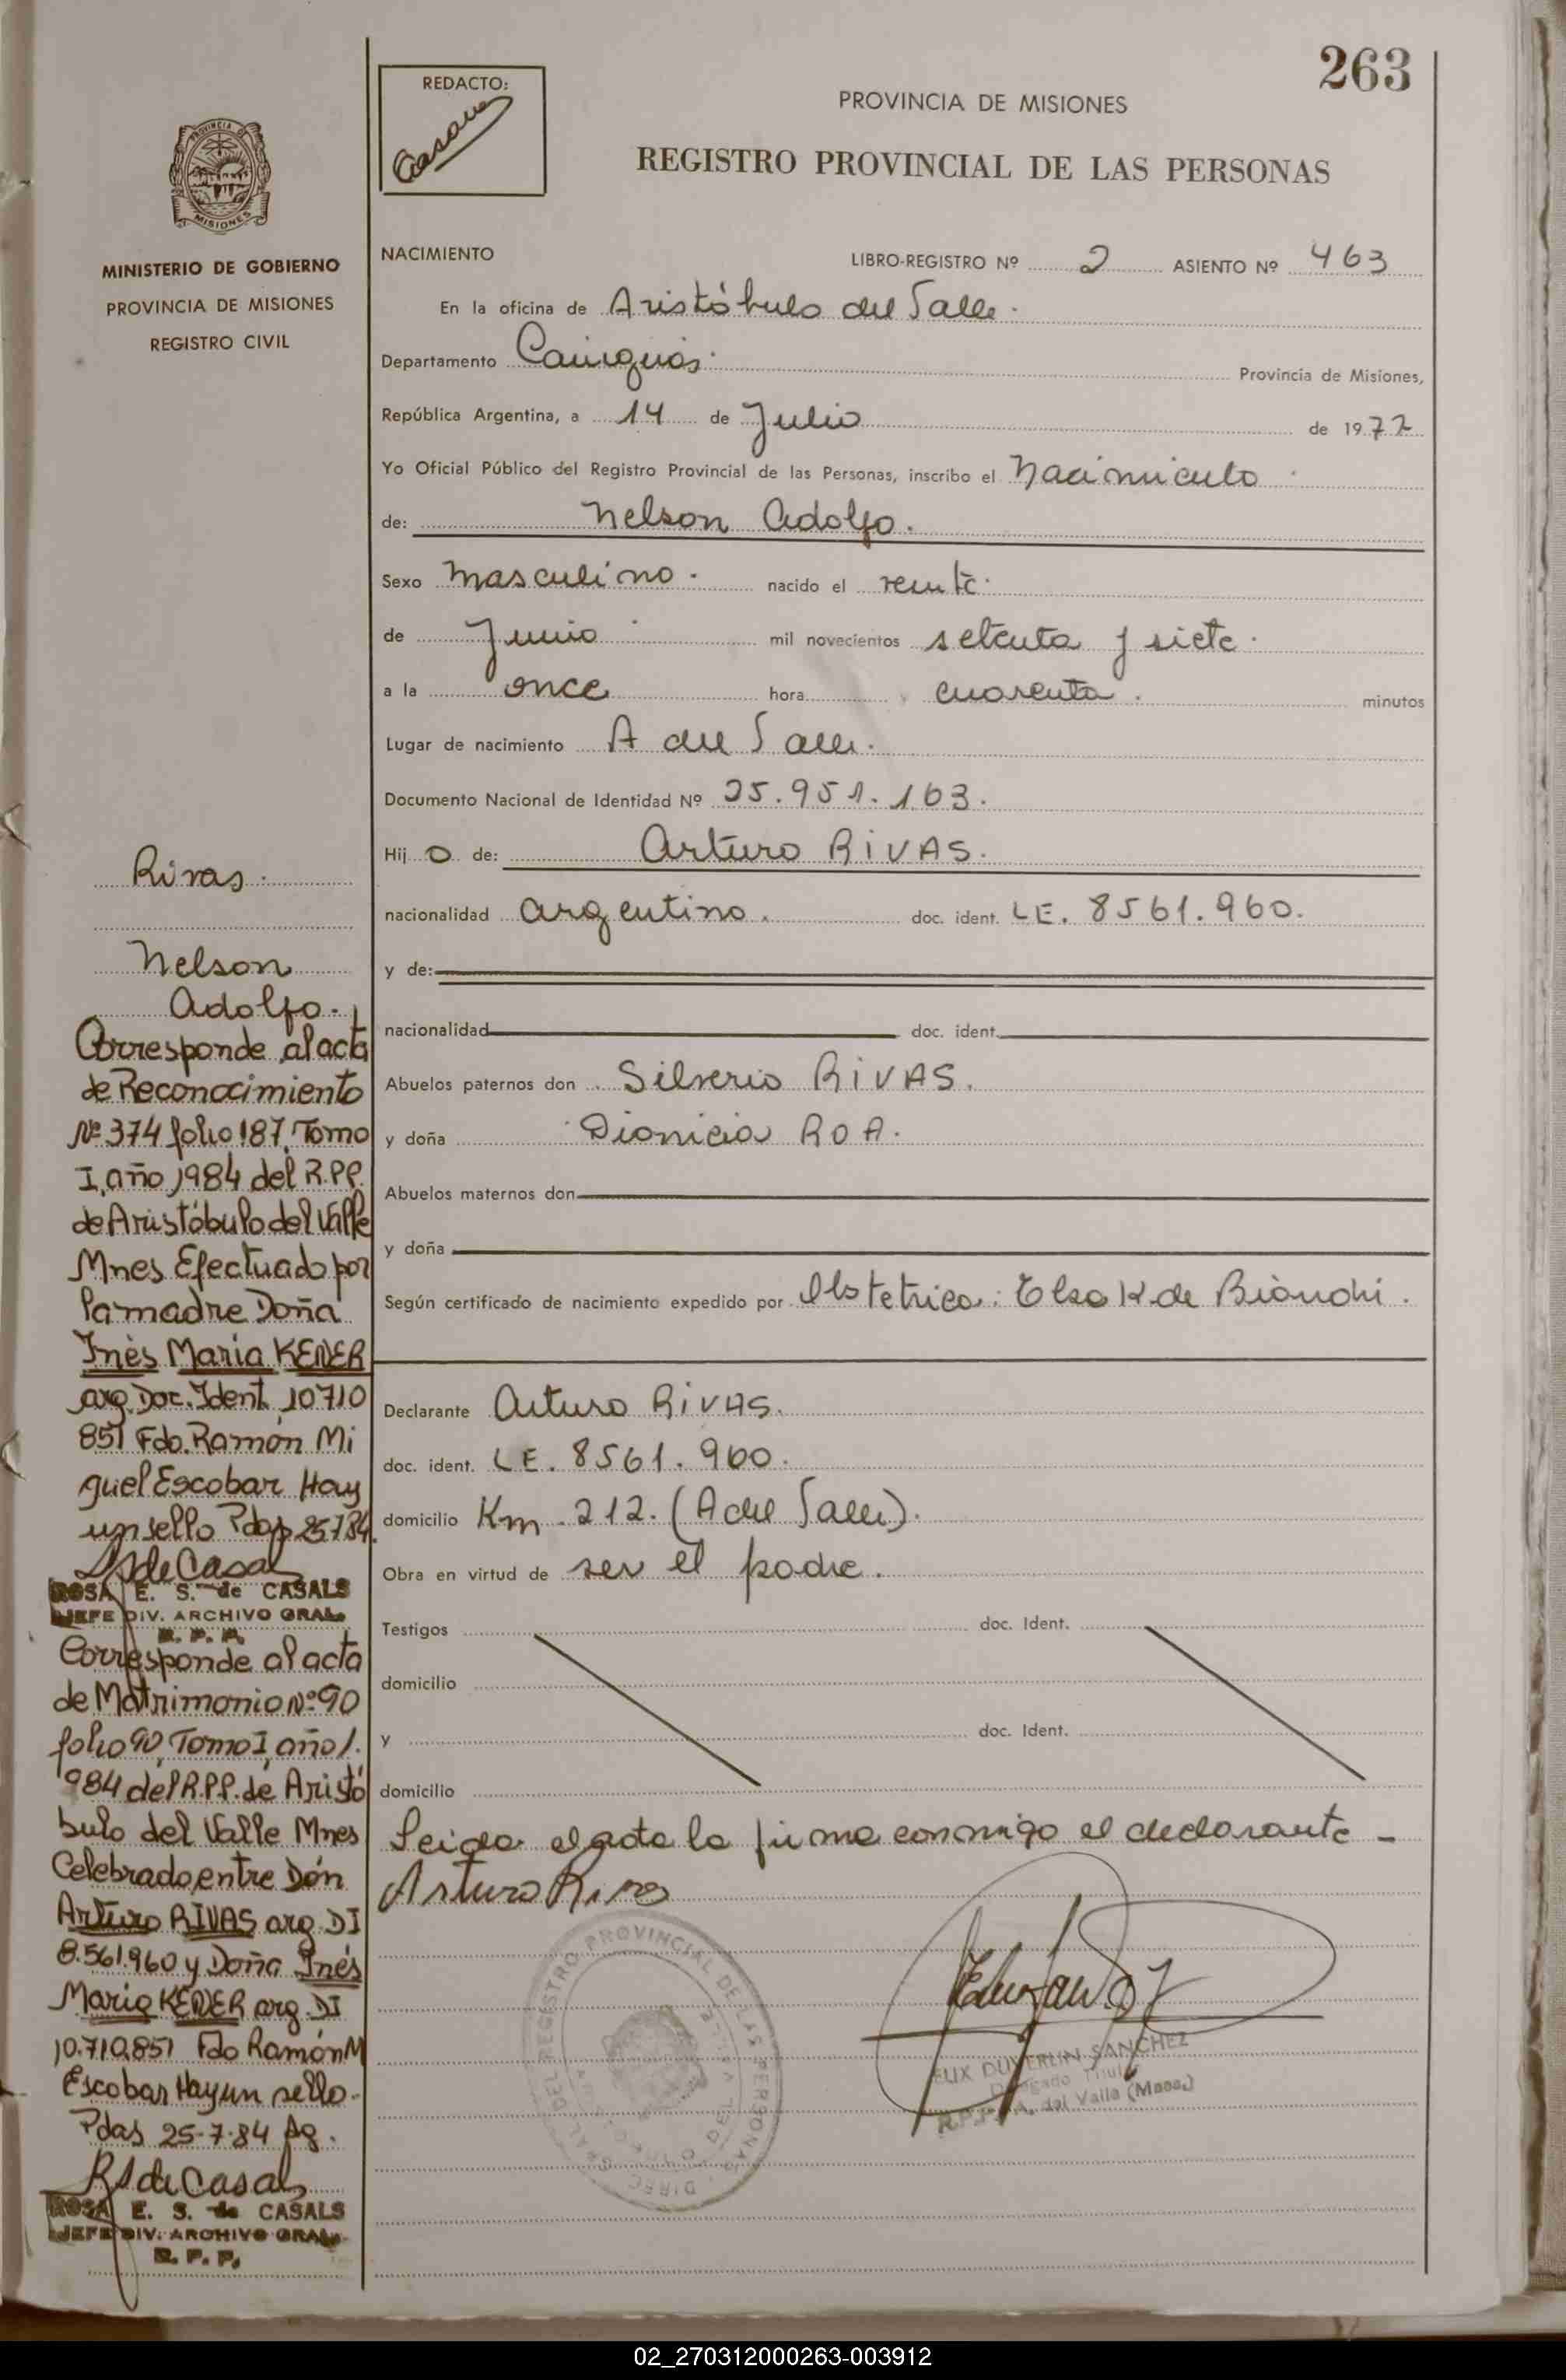 263
REDACTO:
PROVINCIA DE MISIONES
REGISTRO PROVINCIAL DE LAS PERSONAS
PROVINCIA DE
MISIONES
MINISTERIO DE GOBIERNO
PROVINCIA DE MISIONES
REGISTRO CIVIL
NACIMIENTO LIBRO-REGISTRO Nº 2 ASIENTO Nº 463
En la oficina de Aristóbulo del Valle.
Departamento Cainguás. Provincia de Misiones,
República Argentina, a 14 de Julio de 1977
Yo Oficial Público del Registro Provincial de las Personas, inscribo el Nacimiento
de: Nelson Adolfo.
Sexo masculino. nacido el veinte.
de Junio mil novecientos setenta y siete.
a la once hora cuarenta. minutos
Lugar de nacimiento A del Valle.
Documento Nacional de Identidad Nº 25.951.163.
Hij o de: Arturo RIVAS.
nacionalidad argentino. doc. ident. LE. 8561.960.
y de:
nacionalidad doc. ident.
Abuelos paternos don Silverio RIVAS.
y doña Dionicia ROA.
Abuelos maternos don
y doña
Según certificado de nacimiento expedido por Obstetrica: Elsa K de Bianchi.
Declarante Arturo RIVAS.
doc. ident. LE. 8561.960.
domicilio Km. 212. (A del Valle).
Obra en virtud de ser el padre.
Testigos doc. Ident.
domicilio
y doc. Ident.
domicilio
Leida el acta la firma conmigo el declarante -
Arturo Rivas
DIREC. GRAL. DEL REGISTRO PROVINCIAL DE LAS PERSONAS
DUVERLIN SANCHEZ
Delegado Titular
R.P.P. A. del Valle (Mnes.)
Rivas.
Nelson
Adolfo.
Corresponde al acta
de Reconocimiento
Nº 374 folio 187, Tomo
I, año 1984 del R.P.P.
de Aristóbulo del Valle
Mnes Efectuado por
la madre Doña
Inés María KENER
arg. Doc. Ident. 10710
851 Fdo. Ramón Mi
guel Escobar Hay
un sello Pdas 25.7.84.
RS de Casals
ROSA E. S. de CASALS
JEFE DIV. ARCHIVO GRAL.
R. P. P.
Corresponde al acta
de Matrimonio Nº 90
folio 90, Tomo I, año 1.
984 del R.P.P. de Aristó
bulo del Valle Mnes
Celebrado entre Don
Arturo RIVAS arg. DI
8.561.960 y Doña Inés
María KENER arg. DI
10.710.851 Fdo Ramón M
Escobar Hay un sello.
Pdas 25-7-84 Ag.
RS de Casals
ROSA E. S. de CASALS
JEFE DIV. ARCHIVO GRAL.
R. P. P.
02_270312000263-003912